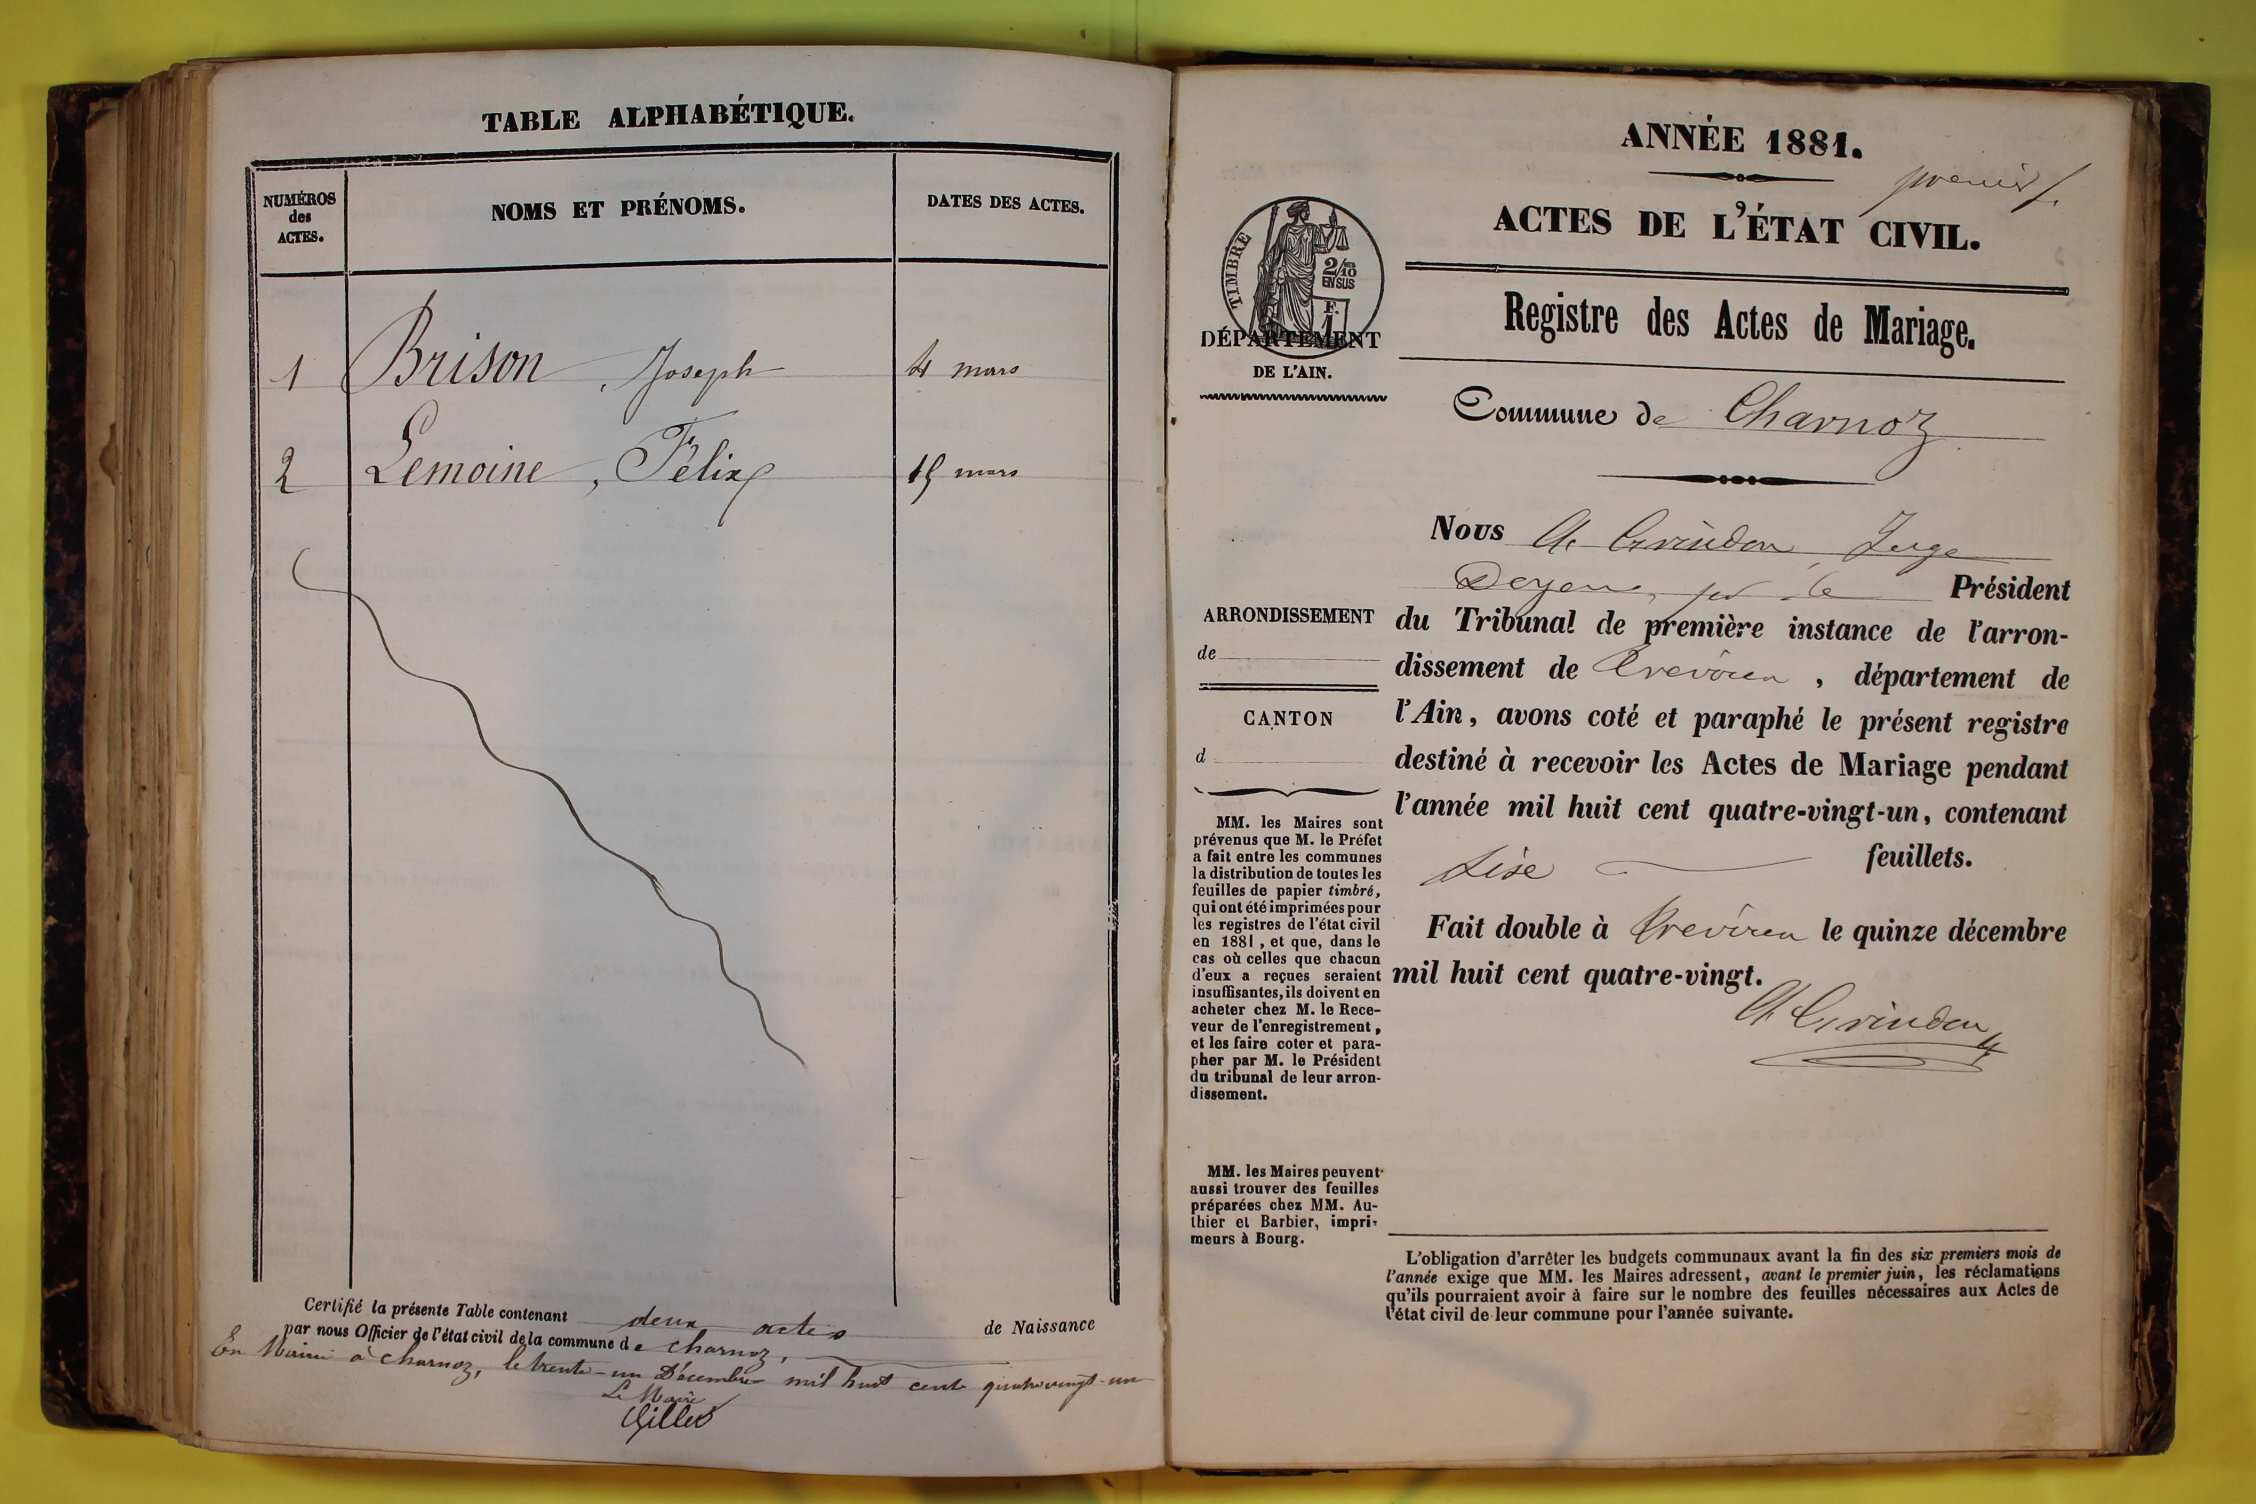 TABLE ALPHABÉTIQUE.
NUMÉROS
des
ACTES.
NOMS ET PRÉNOMS.
DATES DES ACTES.
1 Brison, Joseph 4 mars
2 Lemoine, Félix 15 mars
Certifié la présente Table contenant deux actes de Naissance
par nous Officier de l'état civil de la commune de Charnoz,
En Mairie à Charnoz, le trente-un Décembre mil huit cent quatre vingt-un
Le Maire
Gillet
ANNÉE 1881.
premier f.
ACTES DE L'ÉTAT CIVIL.
TIMBRE
2/10
EN SUS
F.
1
DÉPARTEMENT
DE L'AIN.
Registre des Actes de Mariage.
Commune de Charnoz
ARRONDISSEMENT
de
CANTON
d
MM. les Maires sont
prévenus que M. le Préfet
a fait entre les communes
la distribution de toutes les
feuilles de papier timbré,
qui ont été imprimées pour
les registres de l'état civil
en 1881, et que, dans le
cas où celles que chacun
d'eux a reçues seraient
insuffisantes, ils doivent en
acheter chez M. le Rece-
veur de l'enregistrement,
et les faire coter et para-
pher par M. le Président
du tribunal de leur arron-
dissement.
MM. les Maires peuvent
aussi trouver des feuilles
préparées chez MM. Au-
thier et Barbier, impri-
meurs à Bourg.
Nous Ch Grindon, Juge
Doyen, pr le Président
du Tribunal de première instance de l'arron-
dissement de Trévoux, département de
l'Ain, avons coté et paraphé le présent registre
destiné à recevoir les Actes de Mariage pendant
l'année mil huit cent quatre-vingt-un, contenant
feuillets.
Fait double à Trévoux le quinze décembre
mil huit cent quatre-vingt.
Ch Grindon
L'obligation d'arrêter les budgets communaux avant la fin des six premiers mois de
l'année exige que MM. les Maires adressent, avant le premier juin, les réclamations
qu'ils pourraient avoir à faire sur le nombre des feuilles nécessaires aux Actes de
l'état civil de leur commune pour l'année suivante.